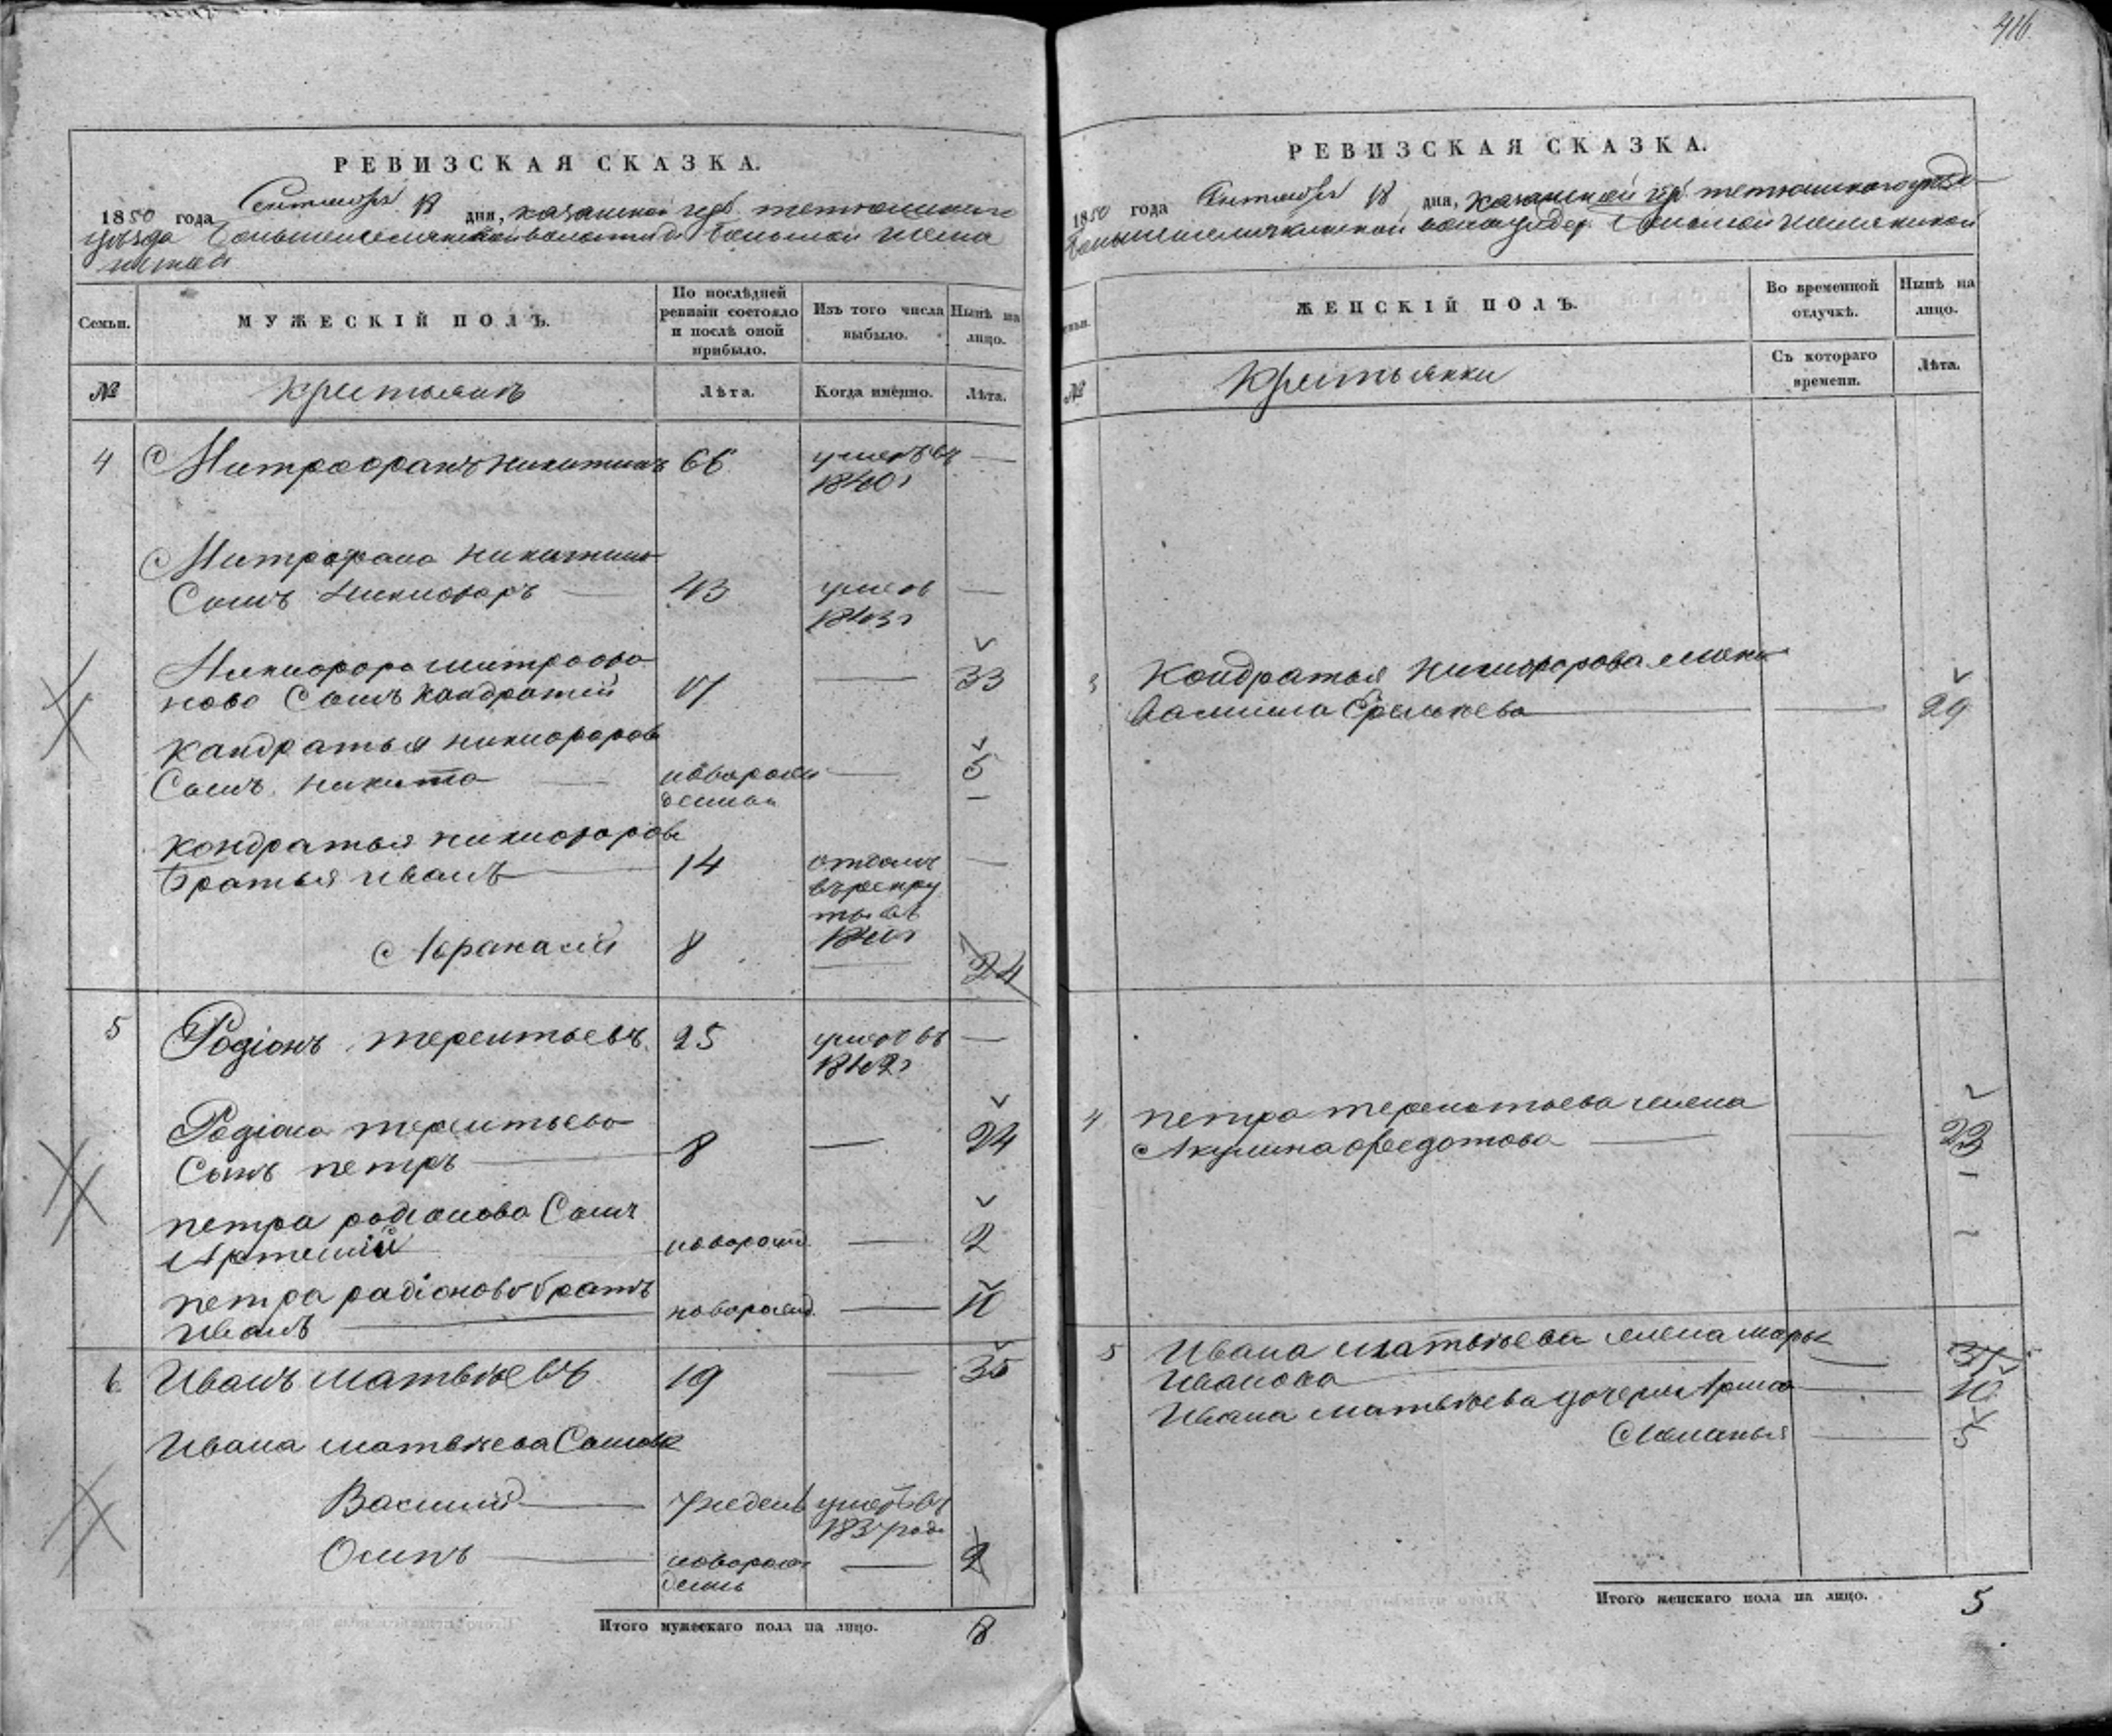 416.
РЕВИЗСКАЯ СКАЗКА.
1850 года Сентября 18 дня, казанской губ тетюшского
уезда Большешемякинской волости д. Большой шемя
киной
Семьи. МУЖЕСКІЙ ПОЛЪ. По послѣдней ревизіи состояло и послѣ оной прибыло. Изъ того числа выбыло. Нынѣ на лицо.
№ крестьянъ Лѣта. Когда имѣнно. Лѣта.
4 Митрофанъ никитинъ 66 умеръ въ —
1840г
Митрофана никитина
Сынъ никифоръ — 43 умеръ —
1843г
Никифора митрофа
нова Сынъ кандратей 17 — 33
Кандратья никифорова
Сынъ никита — новорож — 5
денный
кондратья никифорова
братья иванъ — 14 отданъ —
въ рекру
ты въ
Афанасий 8 — 24
5 Родіонъ терентьевъ 25 умеръ въ —
1842г
Родіона терентьева
Сынъ петръ — 8 — 24
петра родионова Сынъ
Артемий новорожд. — 2
петра радіонова братъ
Иванъ — новорожд. — 10
6 Иванъ матвѣевъ 19 — 35
Ивана матвѣева Сыновья
Василий — 7 недель умеръ въ
1837 году
Осипъ — новорож — 2
денъ
Итого мужескаго пола на лицо. 8
РЕВИЗСКАЯ СКАЗКА.
1850 года Сентября 18 дня, казанской гу. тетюшского уезда
Большешемякинской волости дер. Большой шемякиной
Семьи. ЖЕНСКІЙ ПОЛЪ. Во временной отлучкѣ. Нынѣ на лицо.
№ Крестьянки Съ котораго времени. Лѣта.
3 Кондратья никифорова жена
— — 29
4 петра терентьева жена
Акулина федотова — — 23
5 Ивана матвѣева жена марья
Иванова —
Ивана матвѣева дочери — 10
Меланья — 5
Итого женскаго пола на лицо. 5